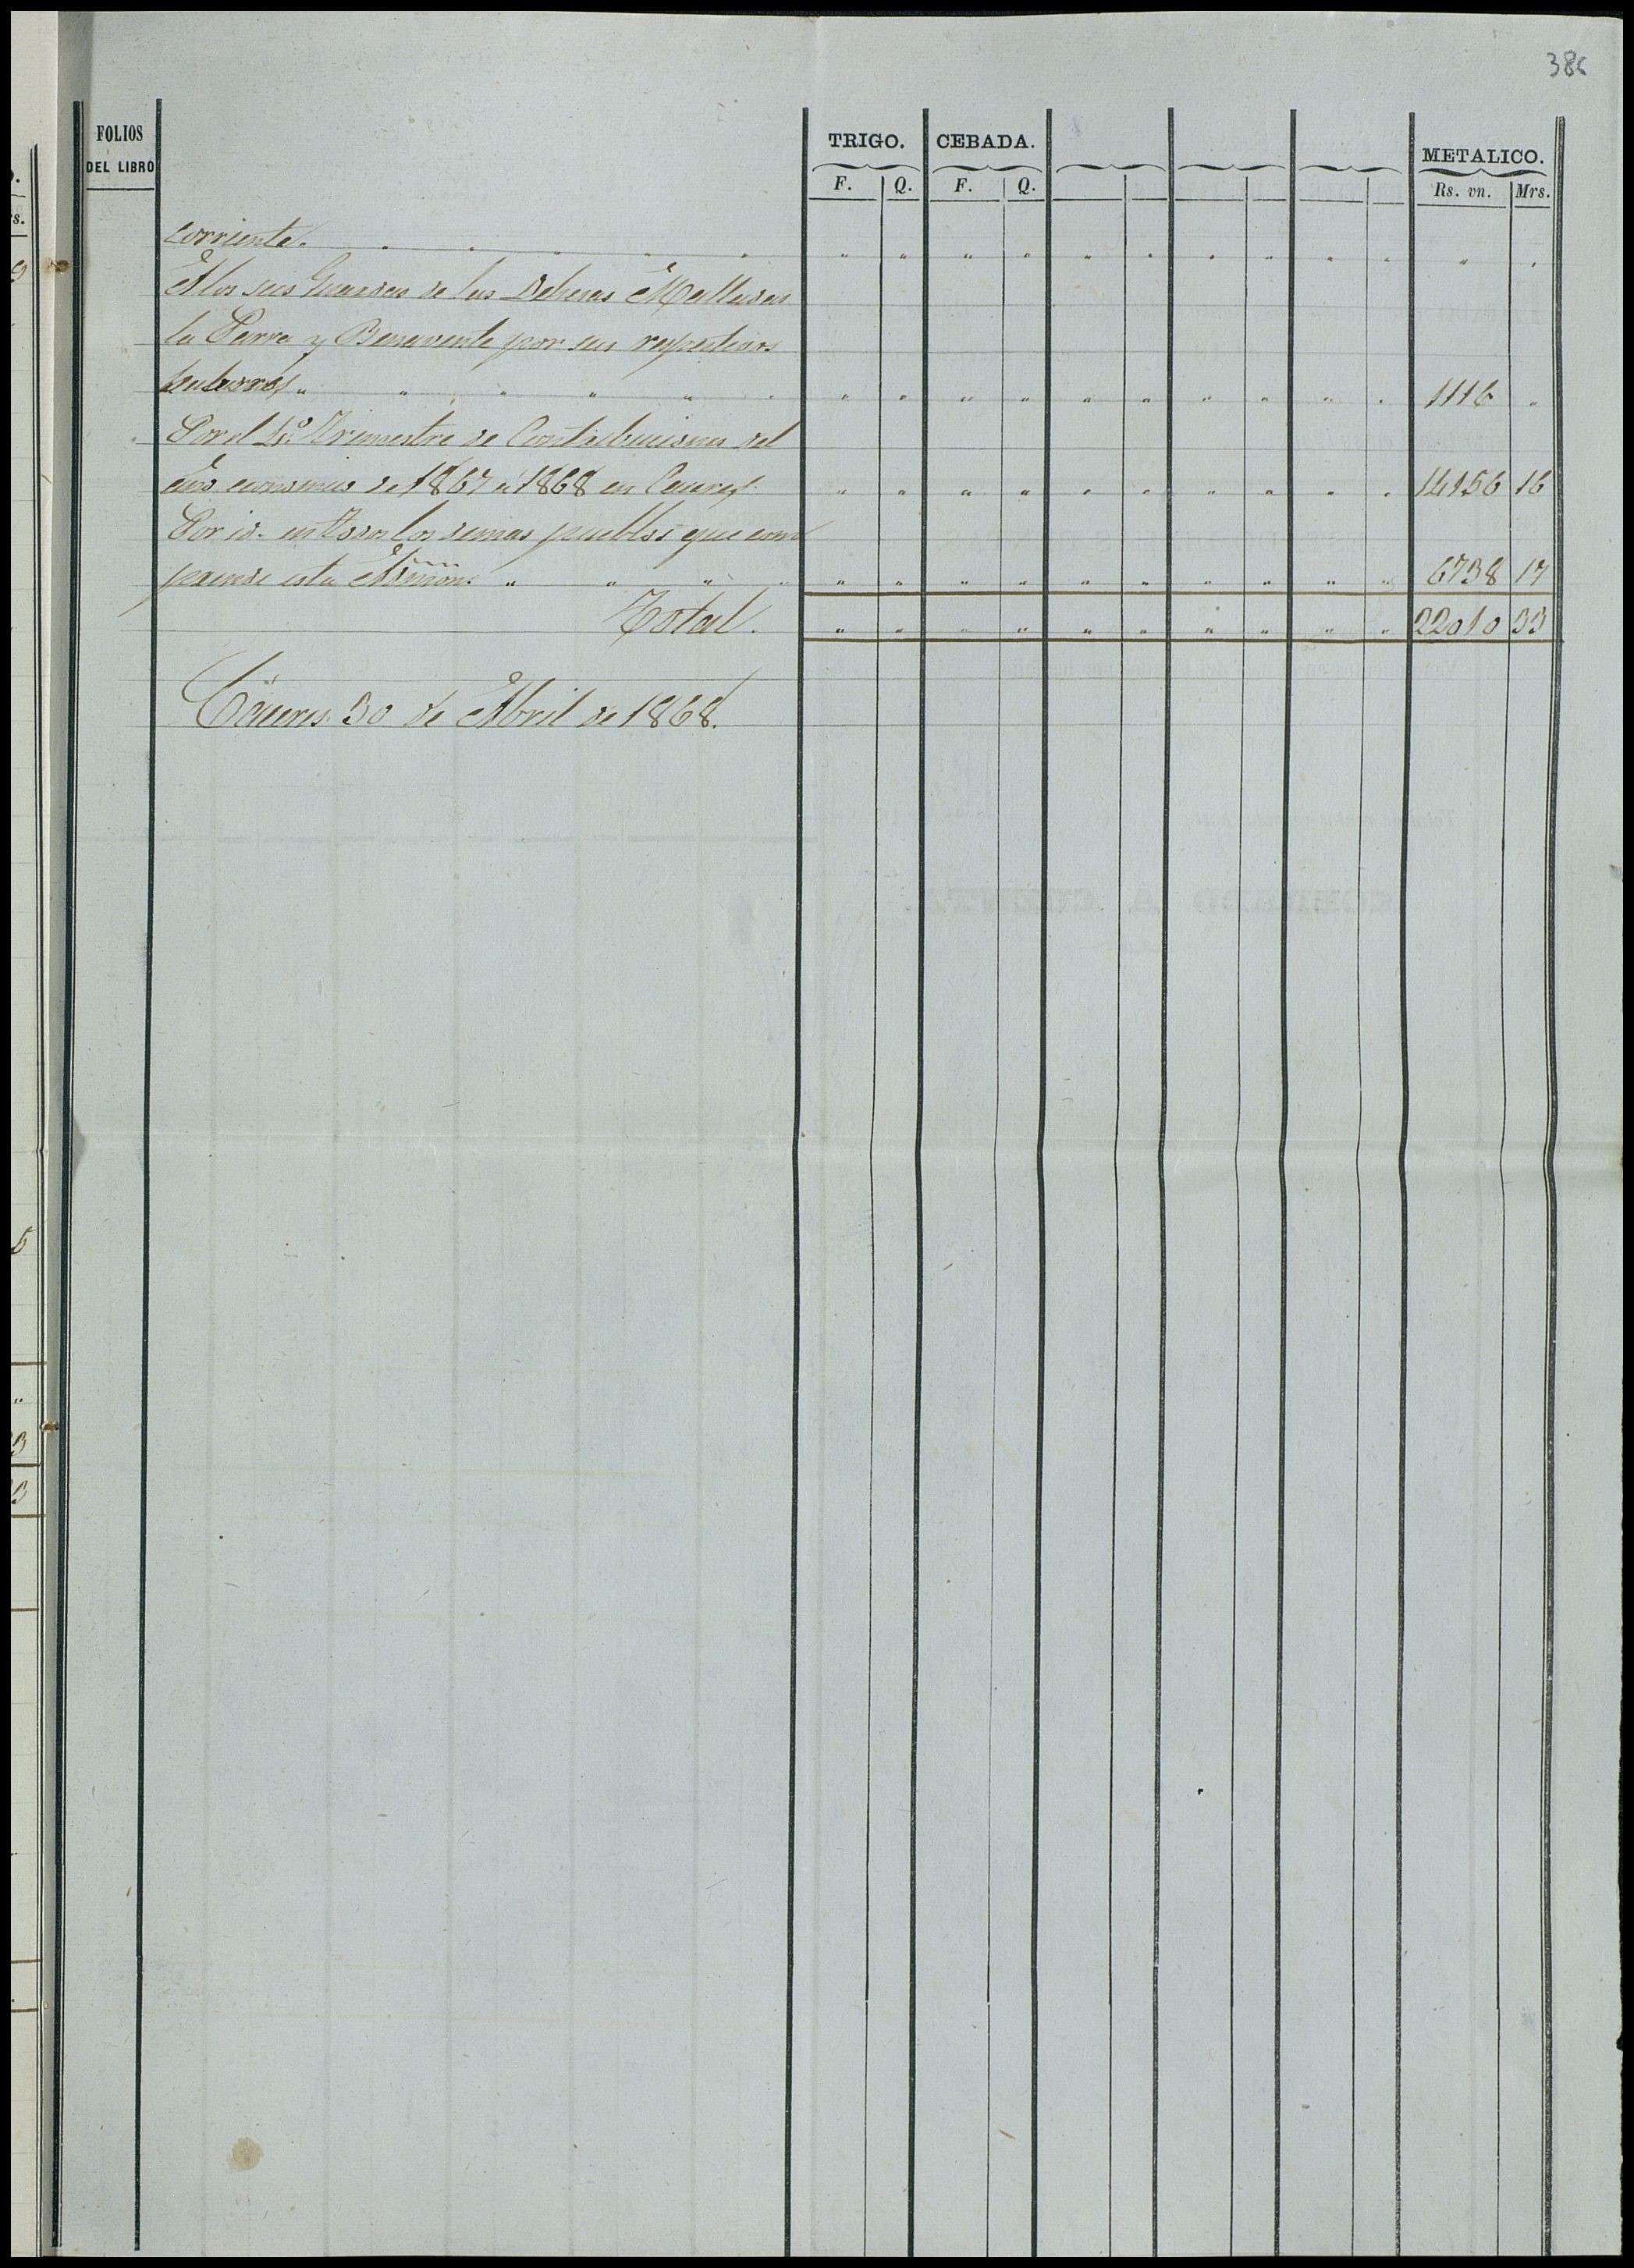 386
FOLIOS
DEL LIBRO
TRIGO. CEBADA. METALICO.
F. Q. F. Q. Rs. vn. Mrs.
corriente. . . . . . " " " " " " " " " " " "
A los seis Guardas de las Dehesas Malladas
la Parra y Benavente por sus respectivos
haberes " " " " " " " " " " " " " " " " 1116 "
Por el 4º Trimestre de Contribuciones del
año economico de 1867 a 1868 en Caceres " " " " " " " " " " 14156 16
Por id. en todos los demas pueblos que com
prende esta Admon. " " " " " " " " " " " " " " 6738 17
Total. " " " " " " " " " " 22010 33
Cáceres 30 de Abril de 1868.